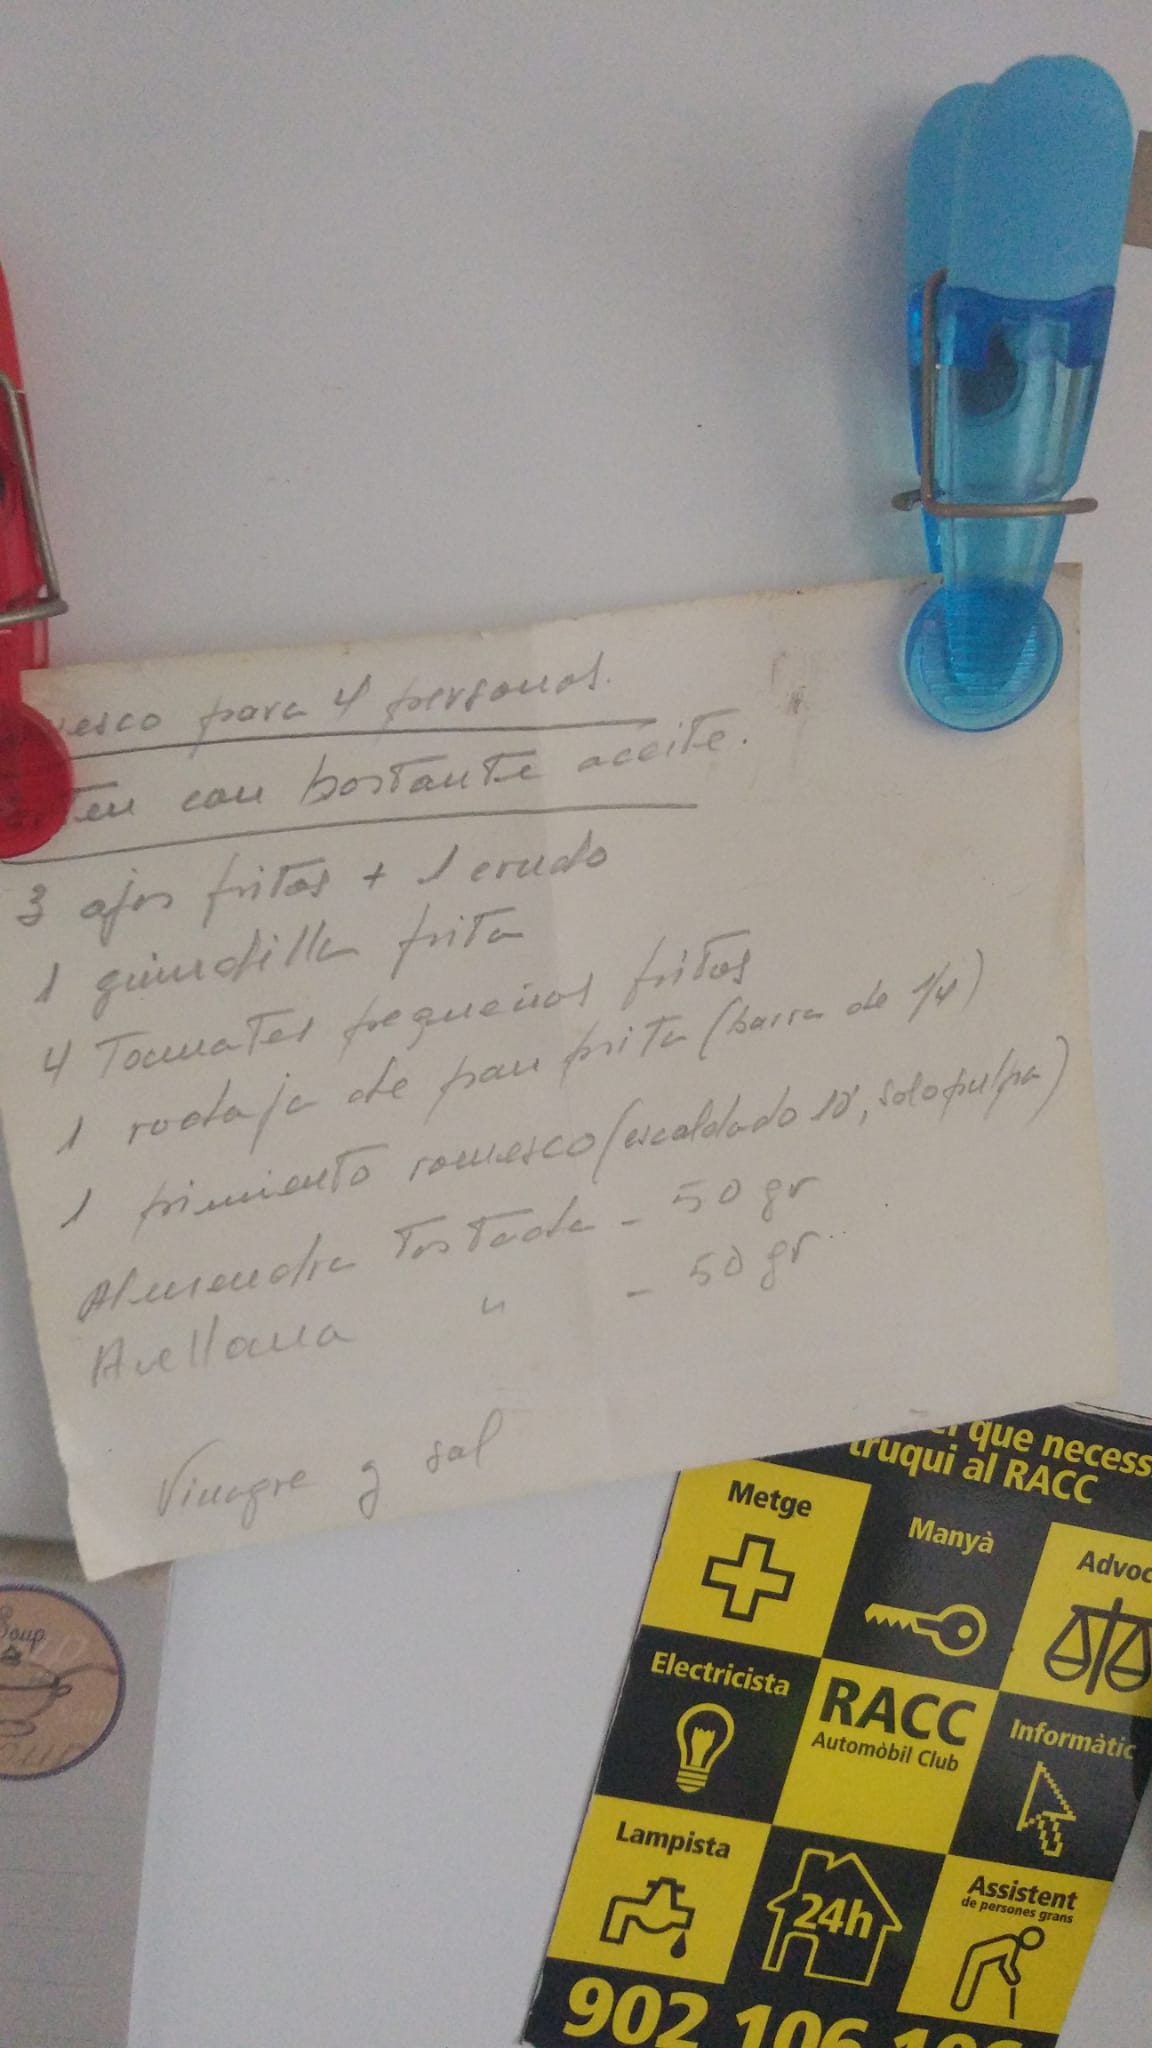 esco para 4 personas.
con bastante aceite.
3 ajos fritos + 1 crudo
1 guindilla frita
4 Tomates pequeños fritos
1 rodaja de pan frita (barra de 1/4)
1 pimiento romesco (escaldado 10', solo pulpa)
Almendra Tostada - 50 gr
Avellana " - 50 gr.
Vinagre y sal
que necess
truqui al RACC
Metge
Manyà
Advoc
Electricista
RACC
Automòbil Club
Informàtic
Lampista
24h
Assistent
de persones grans
902 106 106
Soup